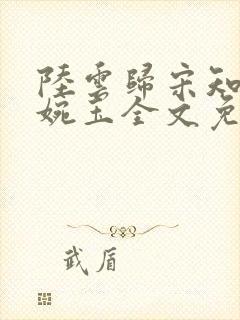 陸雲歸宋知
婉玉全文免
武盾